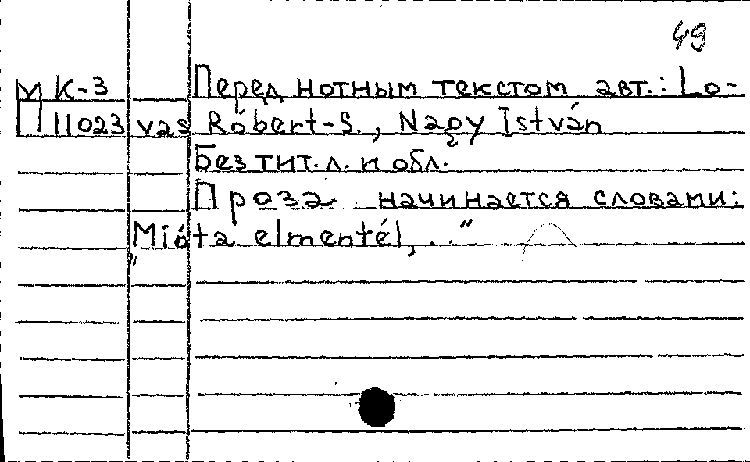 49
М К-3 Перед нотным текстом авт.: Lo-
П 11023 vas Róbert-S., Nagy István
Без тит. л. и обл.
Проза начинается словами:
„Mióta elmentél, ..."